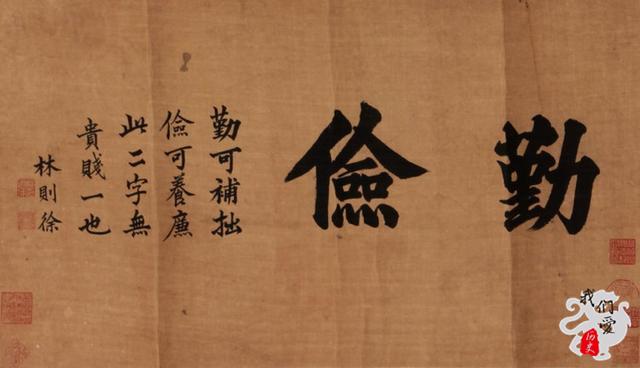 勤儉
勤可補拙
儉可養廉
此二字無
貴賤一也
林則徐
我們愛
历史